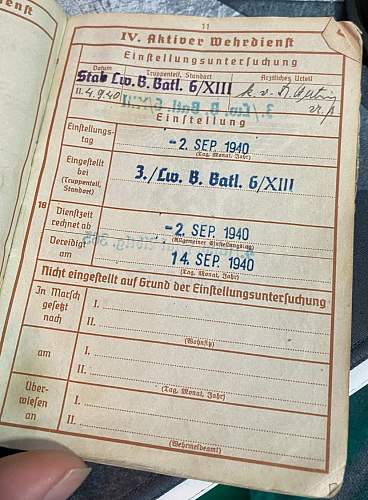 enst
11
IV. Aktiver Wehrdienst
Einstellungsuntersuchung
Datum Truppenteil, Standort Ärztliches Urteil
Stab Lw. B. Batl. 6/XIII
II. 4.9.40 k. v.
Einstellung
Einstellungs-
tag
- 2. SEP. 1940
(Tag, Monat, Jahr)
Eingestellt
bei
(Truppenteil,
Standort)
3./Lw. B. Batl. 6/XIII
18
Dienstzeit
rechnet ab
- 2. SEP. 1940
(Allgemeiner Einstellungstag)
Vereidigt
am
14. SEP. 1940
(Tag, Monat, Jahr)
Nicht eingestellt auf Grund der Einstellungsuntersuchung
In Marsch
gesetzt
nach
I.
II.
(Wehrbzkdo)
am
I.
II.
(Tag, Monat, Jahr)
Über-
wiesen
an
I.
II.
(Wehrmeldeamt)